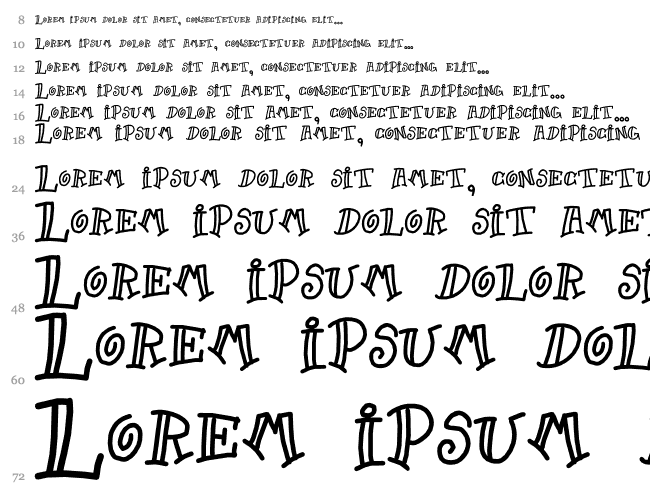 8 Lorem ipsum dolor sit amet, consectetuer adipiscing elit...
10 Lorem ipsum dolor sit amet, consectetuer adipiscing elit...
12 Lorem ipsum dolor sit amet, consectetuer adipiscing elit...
14 Lorem ipsum dolor sit amet, consectetuer adipiscing elit...
16 Lorem ipsum dolor sit amet, consectetuer adipiscing elit...
18 Lorem ipsum dolor sit amet, consectetuer adipiscing
24 Lorem ipsum dolor sit amet, consectetu
36 Lorem ipsum dolor sit amet
48 Lorem ipsum dolor si
60 Lorem ipsum dol
72 Lorem ipsum